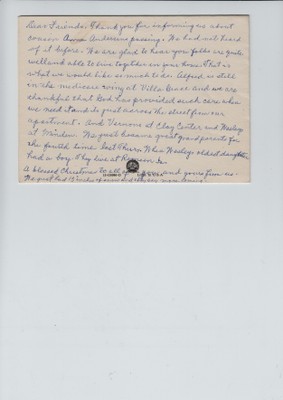 Dear Friends, Thank you for informing us about
cousin Anna Andersens passing. We had not heard
of it before. We are glad to hear you folks are quite
well and able to live together in your home. That is
what we would like so much to do. Alfred is still
in the medicare wing at Villa Grace and we are
thankful that God has provided such care when
we need it and its just across the street from our
apartment. And Vernons at Clay Center and Wesleys
at Minden. We just became great grandparents for
the fourth time last Thurs. When Wesleys oldest daughter
had a boy. They live at Ia.
A blessed Christmas to all of you and yours from us